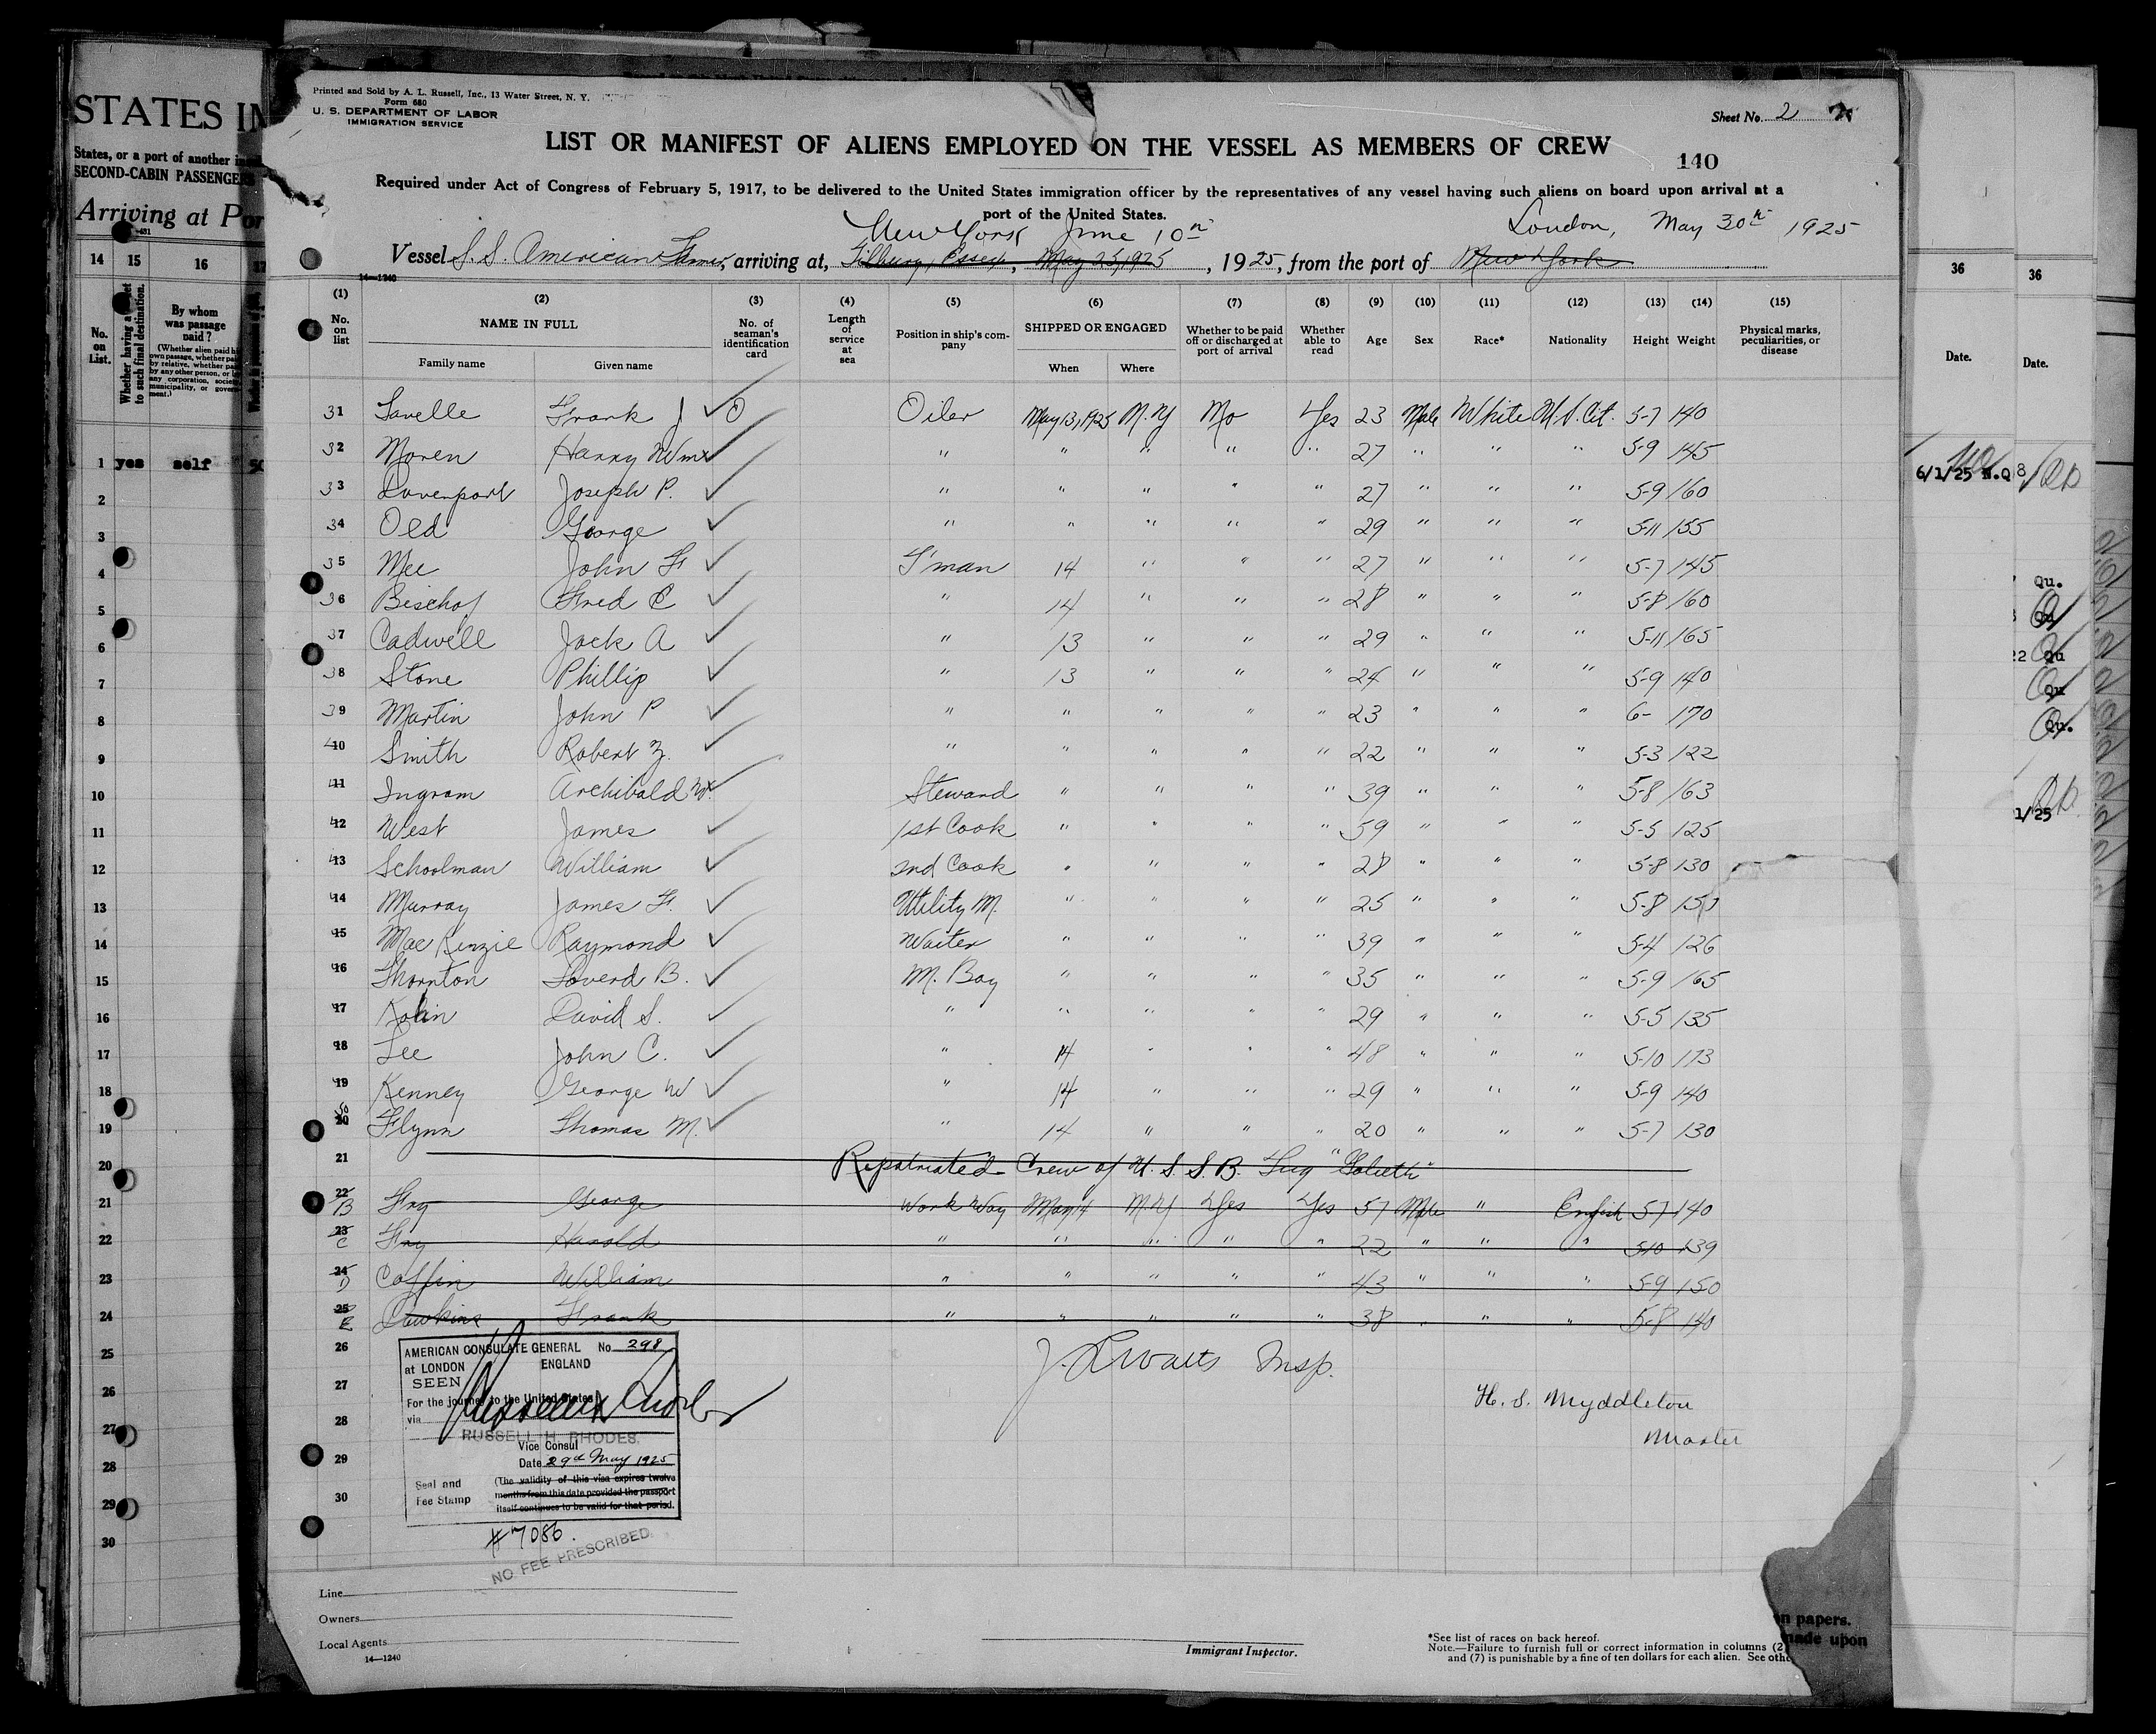 STATES IN
States, or a port of another
SECOND-CABIN PASSENGER
Arriving at Por
14 15 16 17
No. on List.
Whether having a ticket to such final destination.
By whom was passage paid?
1 yes self 50
Printed and Sold by A. L. Russell, Inc., 13 Water Street, N. Y.
Form 680
U. S. DEPARTMENT OF LABOR
IMMIGRATION SERVICE
Sheet No. 2
LIST OR MANIFEST OF ALIENS EMPLOYED ON THE VESSEL AS MEMBERS OF CREW
140
Required under Act of Congress of February 5, 1917, to be delivered to the United States immigration officer by the representatives of any vessel having such aliens on board upon arrival at a
port of the United States.
New York June 10th London, May 30th 1925
Vessel S.S. American Farmer, arriving at, Tilbury, Essex, May 25, 1925, 1925, from the port of New York
14—1240
(1) (2) (3) (4) (5) (6) (7) (8) (9) (10) (11) (12) (13) (14) (15)
No. on list NAME IN FULL No. of seaman's identification card Length of service at sea Position in ship's company SHIPPED OR ENGAGED Whether to be paid off or discharged at port of arrival Whether able to read Age Sex Race* Nationality Height Weight Physical marks, peculiarities, or disease
Family name Given name When Where
31 Lavelle Frank J Oiler May 13, 1925 N.Y No Yes 23 Male White U.S. Cit. 5-7 140
32 Moren Harry Wm " " " " " 27 " " " 5-9 145
33 Davenport Joseph P. " " " " " 27 " " " 5-9 160
34 Old George " " " " " 29 " " " 5-11 155
35 Mee John F F'man 14 " " " 27 " " " 5-7 145
36 Bischof Fred C " 14 " " " 28 " " " 5-8 160
37 Cadwell Jack A " 13 " " " 29 " " " 5-11 165
38 Stone Phillip " 13 " " " 24 " " " 5-9 140
39 Martin John P " " " " " 23 " " " 6- 170
40 Smith Robert Z. " " " " " 22 " " " 5-3 122
41 Ingram Archibald Steward " " " " 39 " " " 5-8 163
42 West James 1st Cook " " " " 59 " " " 5-5 125
43 Schoolman William 2nd Cook " " " " 28 " " " 5-8 130
44 Murray James F. Utility M. " " " " 25 " " " 5-8
45 Mac Kenzie Raymond Waiter " " " " 39 " " " 5-4 126
46 Thornton Loverd B. M. Boy " " " " 35 " " " 5-9 165
47 Kolin David S. " " " " " 29 " " " 5-5 135
48 Lee John C. " 14 " " " 48 " " " 5-10 173
49 Kenney George W " 14 " " " 29 " " " 5-9 140
50 Flynn Thomas M. " 14 " " " 20 " " " 5-7 130
21 Repatriated Crew of U.S.S.B. Tug "Goliath"
22 B Fry George Work Way May 14 N.Y Yes Yes 57 Male " English 5-7 140
23 C Fry Harold " " " " " 22 " " " 5-10 139
24 D Coffin William " " " " " 43 " " " 5-9 150
25 E Dawkins Frank " " " " " 38 " " " 5-8 140
26
27
28
29
30
AMERICAN CONSULATE GENERAL No 298
at LONDON ENGLAND
SEEN
For the journey to the United States
via
RUSSELL H. RHODES,
Vice Consul
Date 29th May 1925
Seal and Fee Stamp
(The validity of this visa expires twelve
months from this date provided the passport
itself continues to be valid for that period.
#7086.
NO FEE PRESCRIBED.
J. L. Watts Insp.
H. S. Myddleton
Master
Line
Owners
Local Agents
14—1240
Immigrant Inspector.
*See list of races on back hereof.
Note.—Failure to furnish full or correct information in columns (2
and (7) is punishable by a fine of ten dollars for each alien. See othe
n papers.
made upon
36 36
Date. Date.
6/1/25 N.Q
Qu.
Qu
22 Qu
Qu
Qu.
1/25